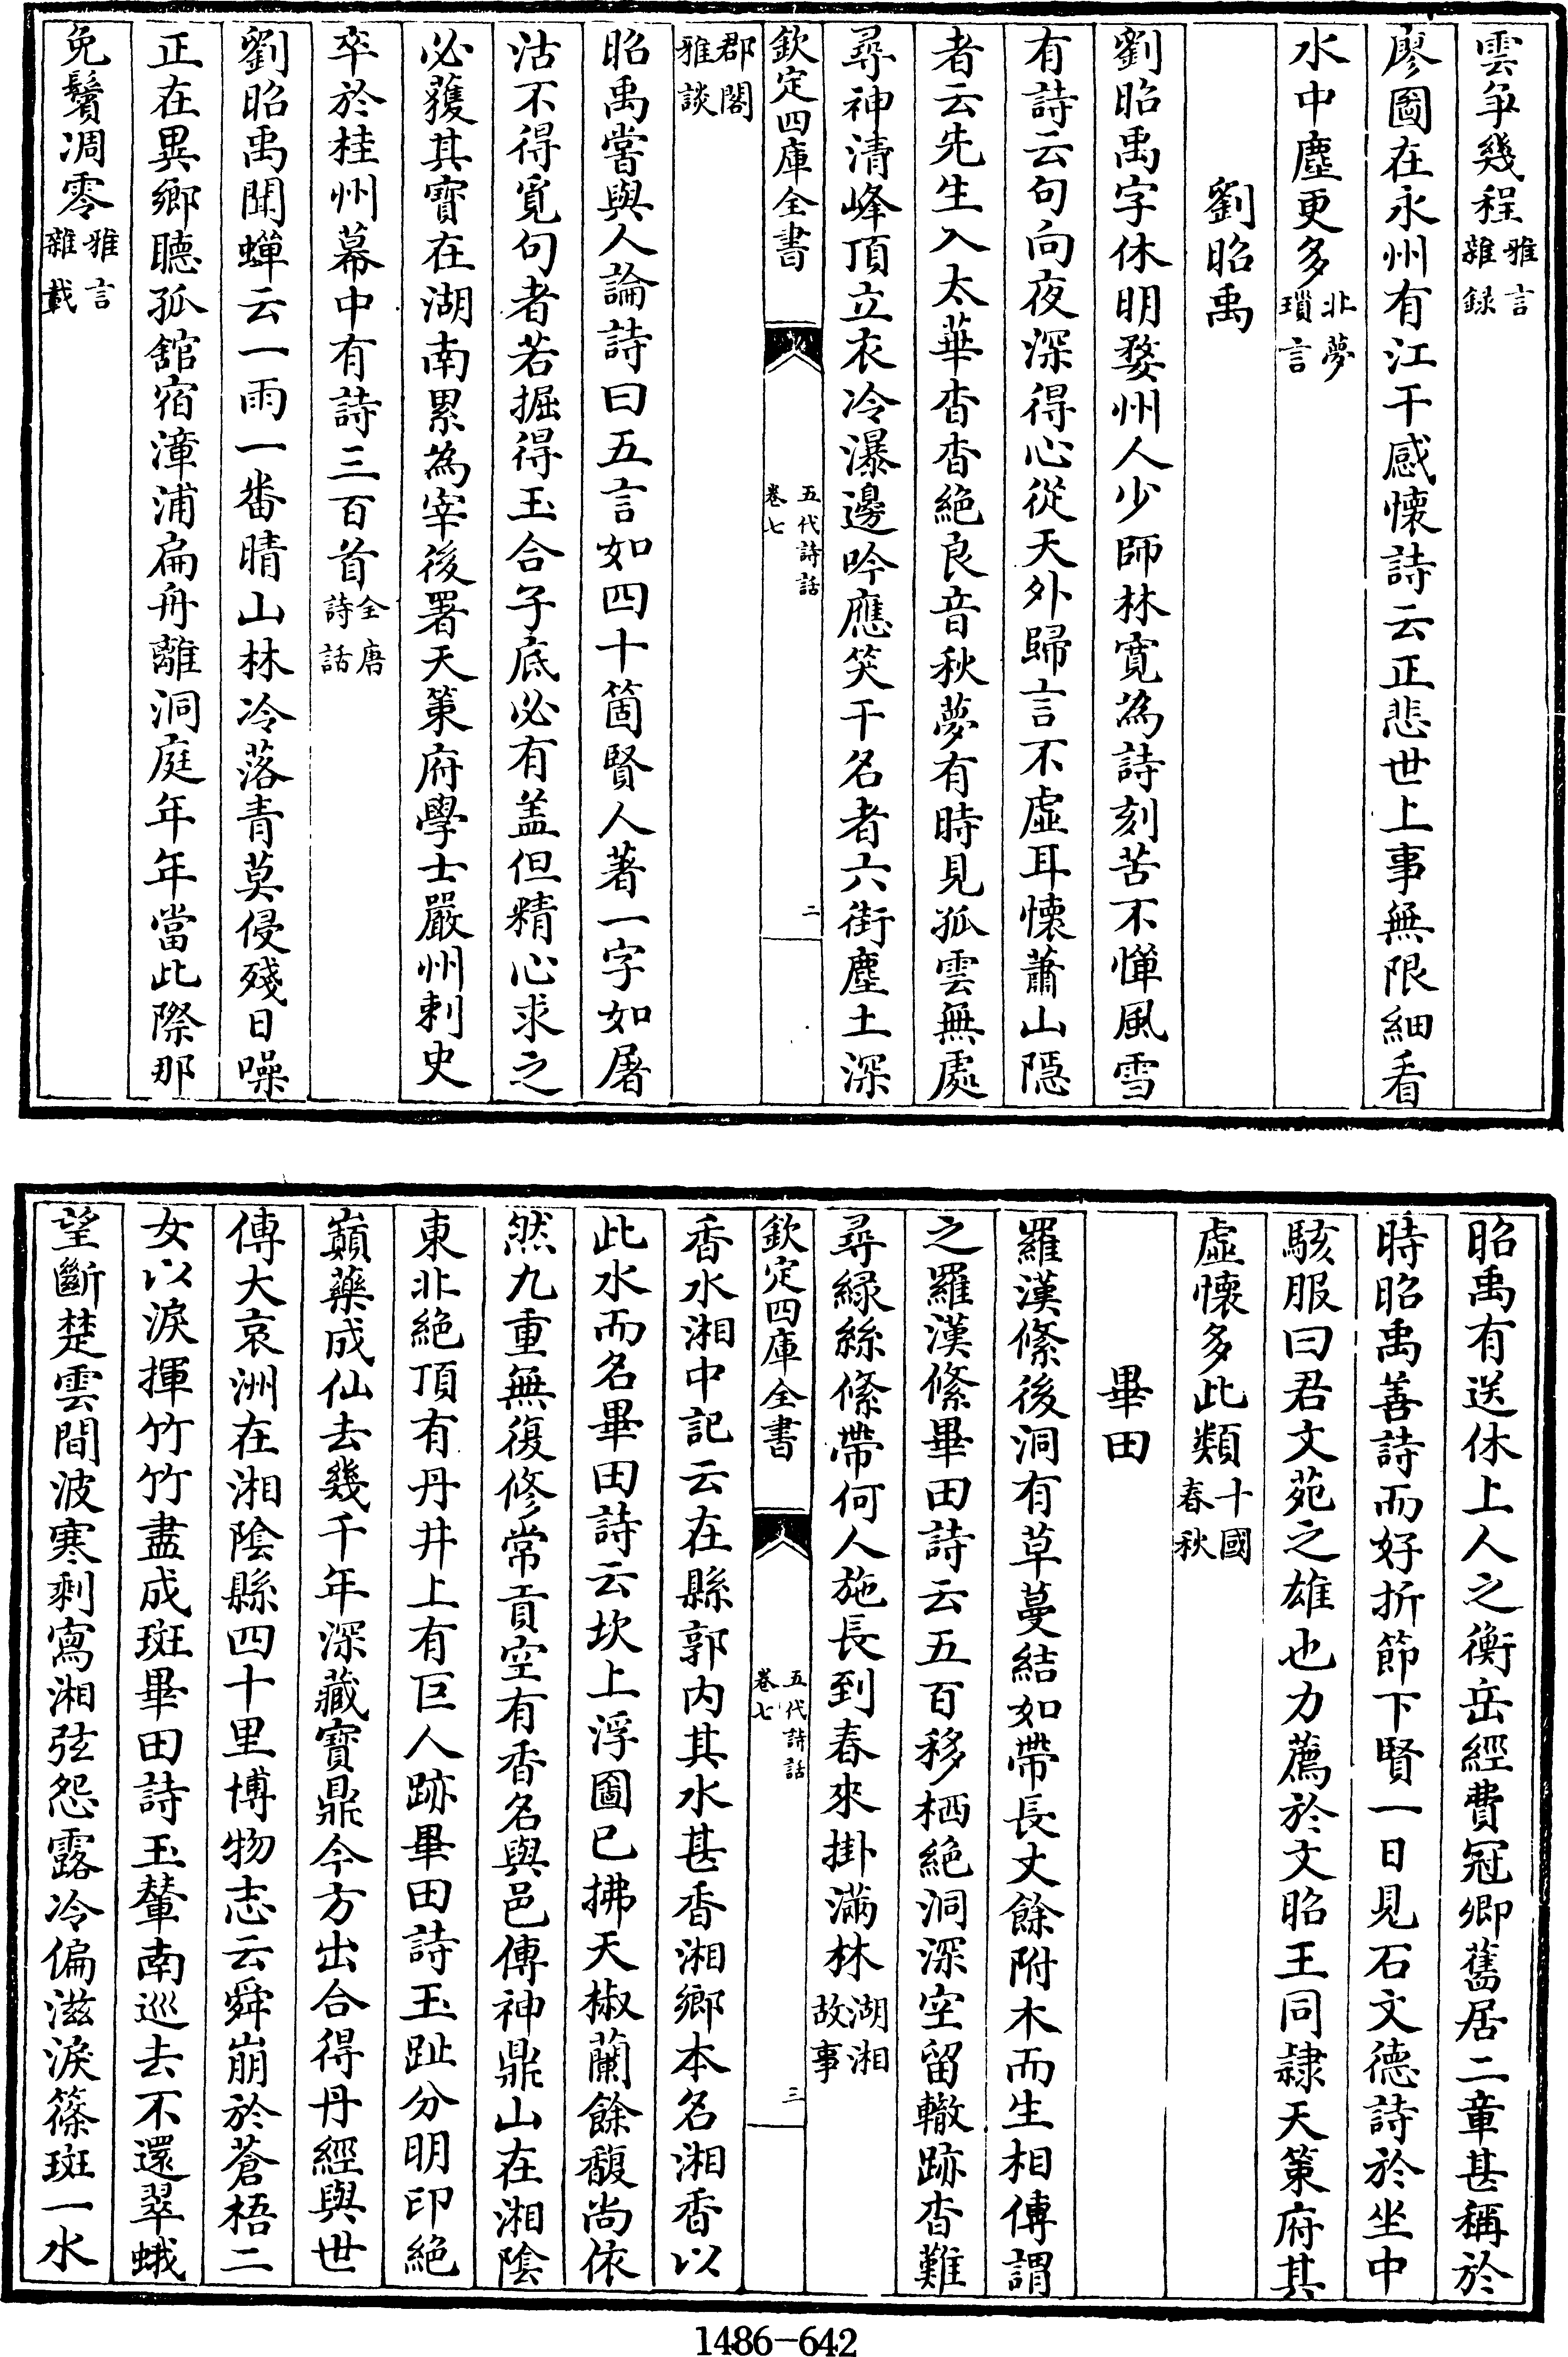 雲争幾程雅言雜録
廖圖在永州有江干感懷詩云正悲世上事無限細看
水中塵更多北夢瑣言
劉昭禹
劉昭禹字休明婺州人少師林寛為詩刻苦不憚風雪
有詩云句向夜深得心從天外歸言不虛耳懷蕭山隱
者云先生入太華杳杳絶良音秋夢有時見孤雲無處
尋神清峰頂立衣冷瀑邊吟應笑干名者六街塵土深
欽定四庫全書
五代詩話
卷七
二
郡閣雅談
昭禹嘗與人論詩曰五言如四十箇賢人著一字如屠
沽不得覓句者若掘得玉合子底必有盖但精心求之
必獲其寶在湖南累為宰後署天策府學士嚴州刺史
卒於桂州幕中有詩三百首全唐詩話
劉昭禹聞蟬云一雨一番晴山林冷落青莫侵殘日噪
正在異鄉聽孤舘宿漳浦扁舟離洞庭年年當此際那
免鬢凋零雅言雜載
昭禹有送休上人之衡岳經費冠卿舊居二章甚稱於
時昭禹善詩而好折節下賢一日見石文德詩於坐中
駭服曰君文苑之雄也力薦於文昭王同隷天策府其
虛懷多此類十國春秋
畢田
羅漢絛後洞有草蔓結如帶長丈餘附木而生相傳謂
之羅漢絛畢田詩云五百移栖絶洞深空留轍跡杳難
尋緑絲絛帶何人施長到春來掛滿林湖湘故事
欽定四庫全書
五代詩話
卷七
三
香水湘中記云在縣郭内其水甚香湘鄉本名湘香以
此水而名畢田詩云坎上浮圖已拂天椒蘭餘馥尚依
然九重無復修常貢空有香名與邑傳神鼎山在湘陰
東北絶頂有丹井上有巨人跡畢田詩玉趾分明印絶
巔藥成仙去幾千年深藏寶鼎今方出合得丹經與世
傳大哀洲在湘陰縣四十里博物志云舜崩於蒼梧二
女以淚揮竹竹盡成斑畢田詩玉輦南巡去不還翠蛾
望斷楚雲間波寒剩寫湘弦怨露冷偏滋淚篠斑一水
1486-642